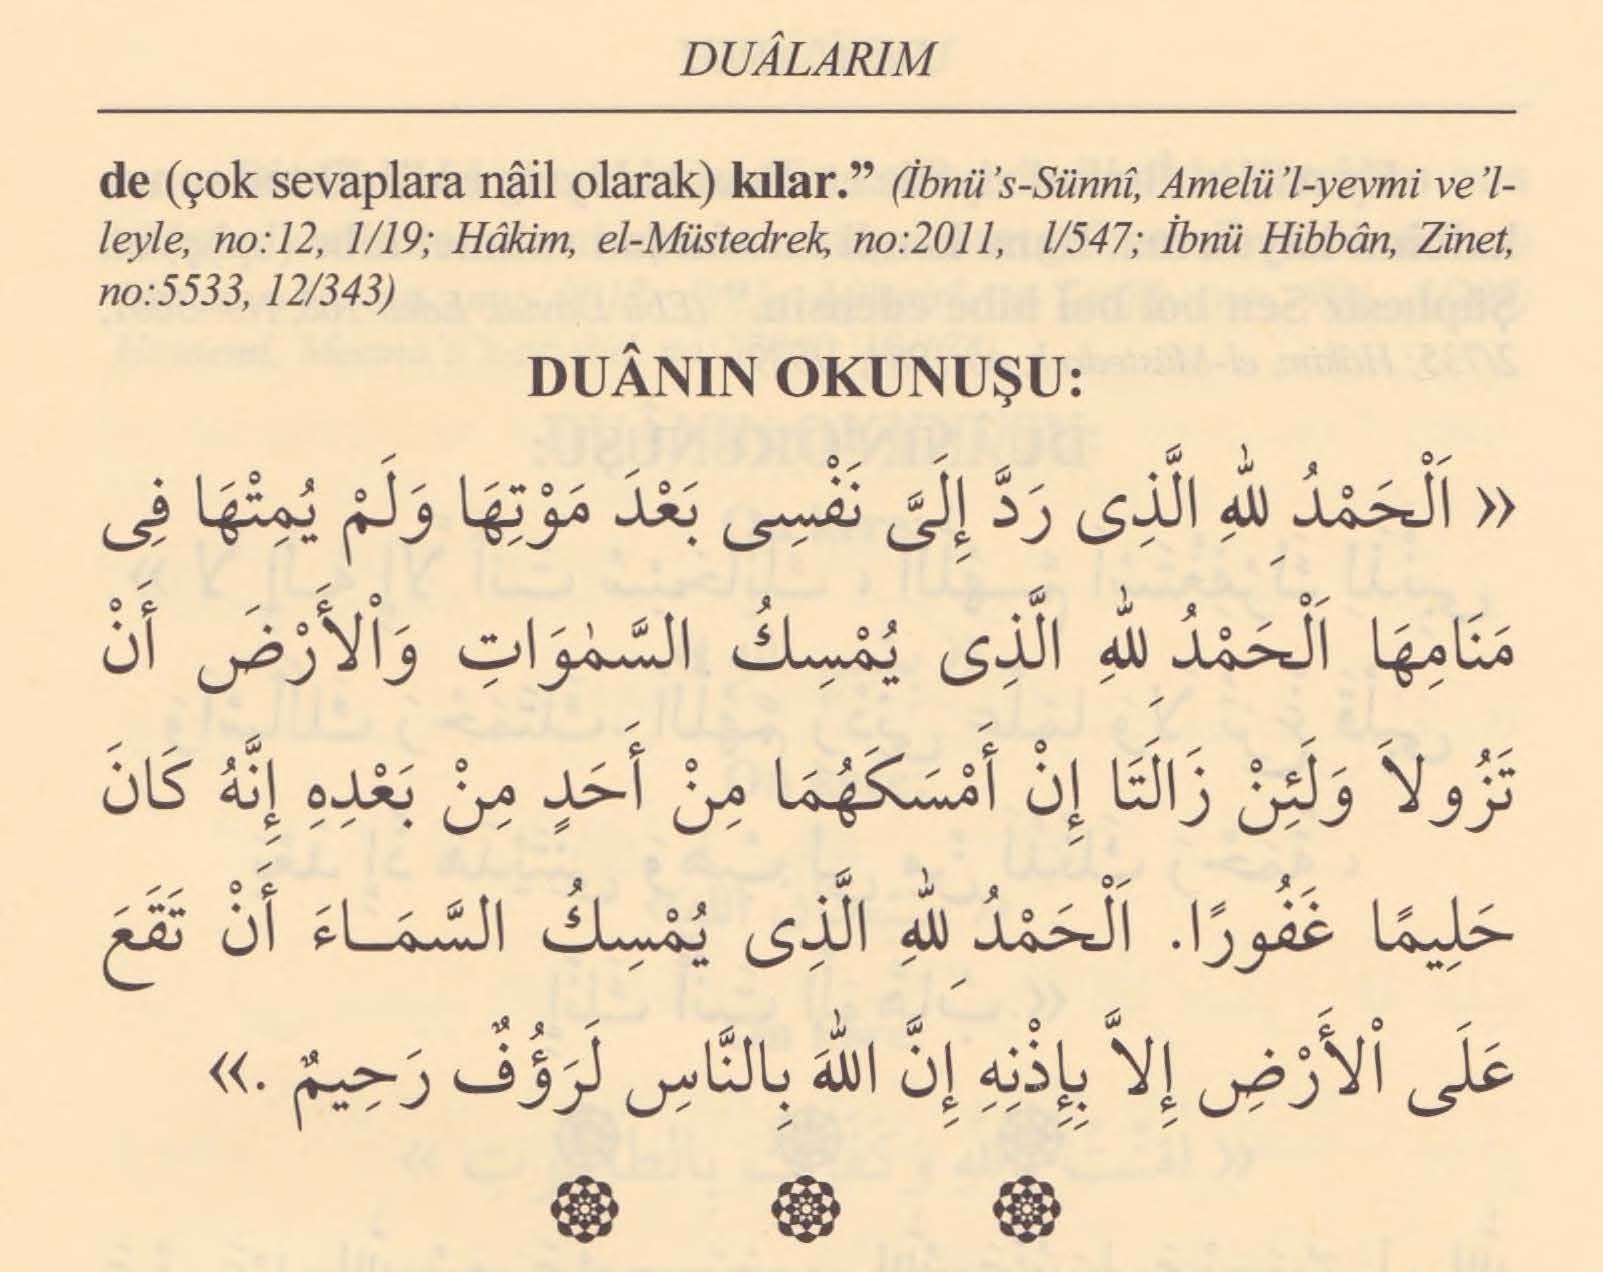 DUÂLARIM
de (çok sevaplara nâil olarak) kılar.” (İbnü’s-Sünnî, Amelü’l-yevmi ve’l-
leyle, no:12, 1/19; Hâkim, el-Müstedrek, no:2011, l/547; İbnü Hibbân, Zinet,
no:5533, 12/343)
DUÂNIN OKUNUŞU:
« اَلْحَمْدُ لِلهِ الَّذِى رَدَّ إِلَىَّ نَفْسِى بَعْدَ مَوْتِهَا وَلَمْ يُمِتْهَا فِى
مَنَامِهَا اَلْحَمْدُ لِلهِ الَّذِى يُمْسِكُ السَّمٰوَاتِ وَاْلأَرْضَ أَنْ
تَزُولاَ وَلَئِنْ زَالَتَا إِنْ أَمْسَكَهُمَا مِنْ أَحَدٍ مِنْ بَعْدِهِ إِنَّهُ كَانَ
حَلِيمًا غَفُورًا. اَلْحَمْدُ لِلهِ الَّذِى يُمْسِكُ السَّمَــاءَ أَنْ تَقَعَ
عَلَى اْلأَرْضِ إِلاَّ بِإِذْنِهِ إِنَّ اللهَ بِالنَّاسِ لَرَؤُفٌ رَحِيمٌ .»